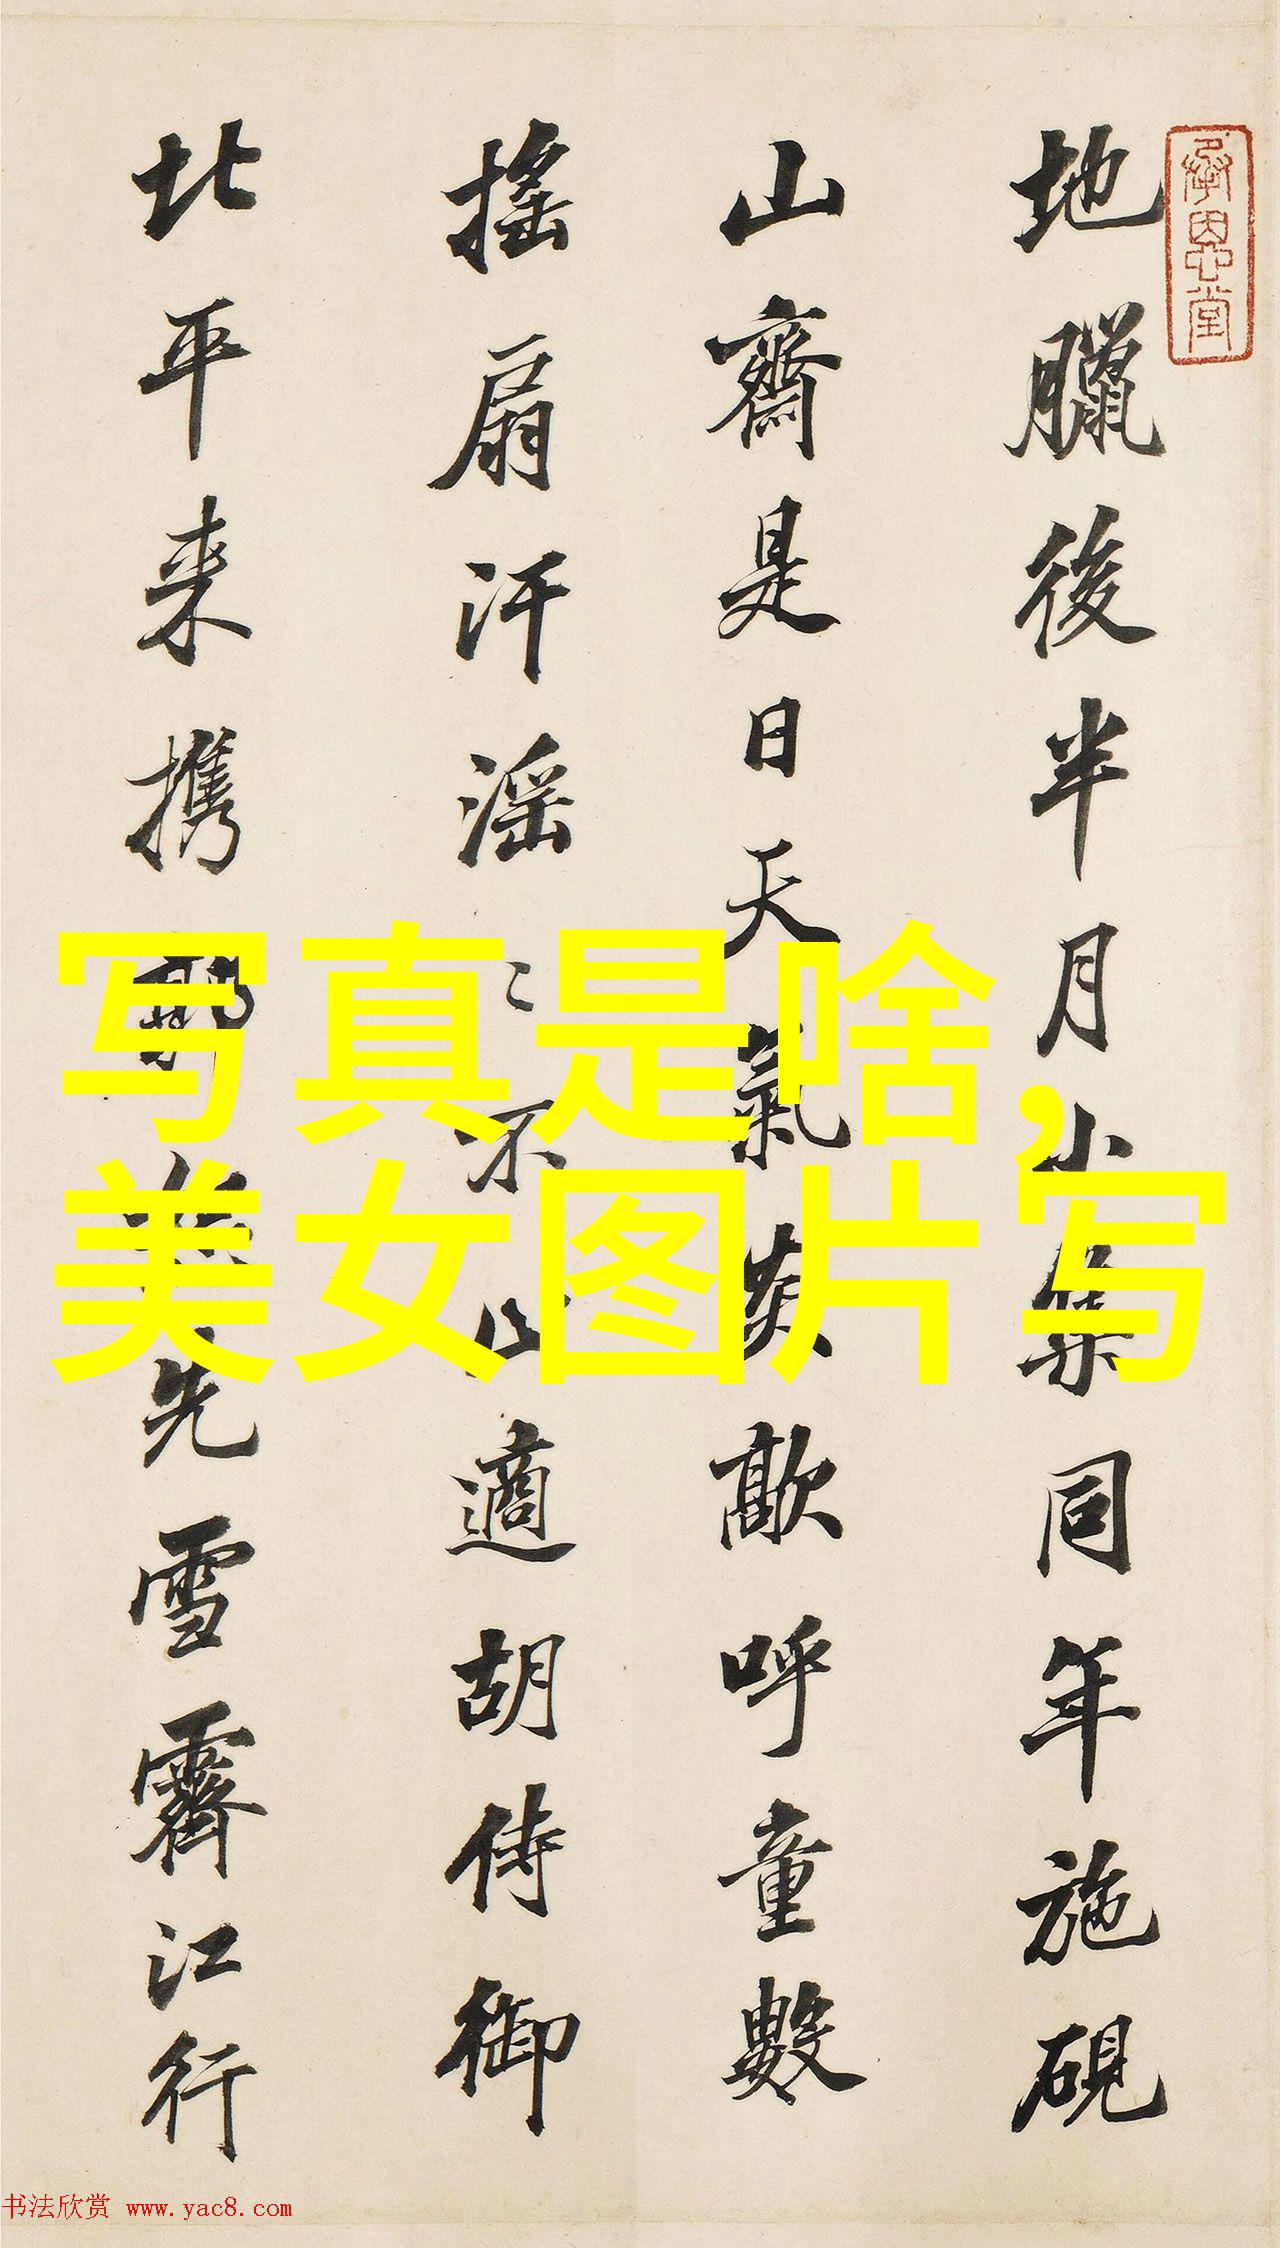 承恩堂
地臘後半月小集同年施硯
山齋是日天氣炎歊呼童數
搖扇汗滛〻不止適胡侍御
北平来携郭恕先雪霽江行
写真是啥,
美女图片写
书法欣赏 www.yac8.com